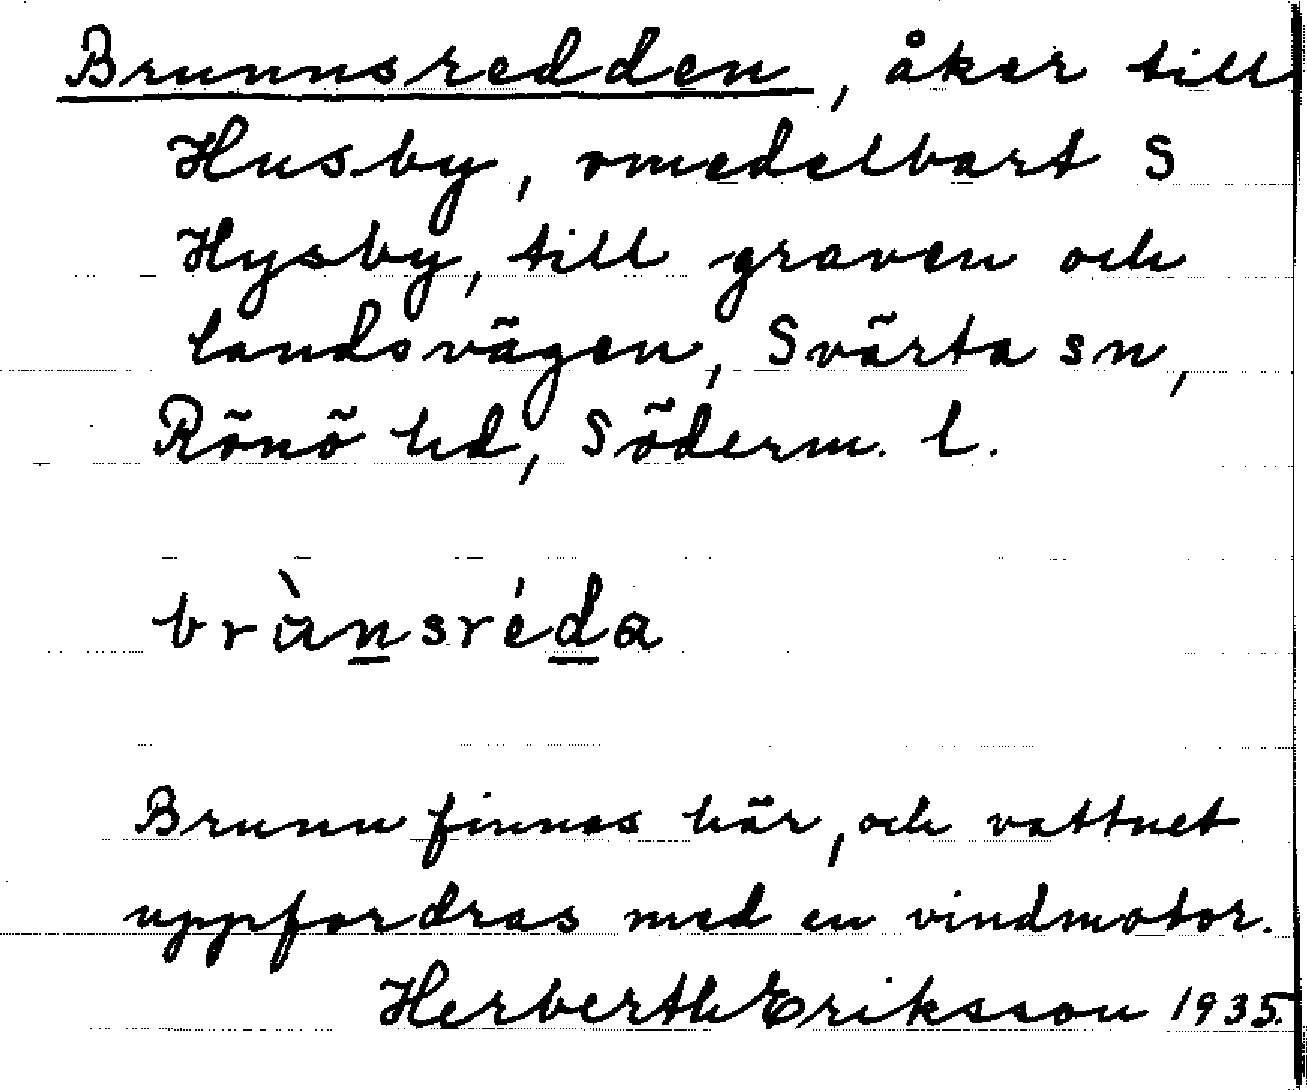 Brunnsredden, åker till
Husby, omedelbart S
Hysby, till graven och
landsvägen, Svärta sn,
Rönö hd, Söderm. l.
brùnsréda
Brunn finnes här, och vattnet
uppfordras med en vindmotor.
Herberth Eriksson 1935.